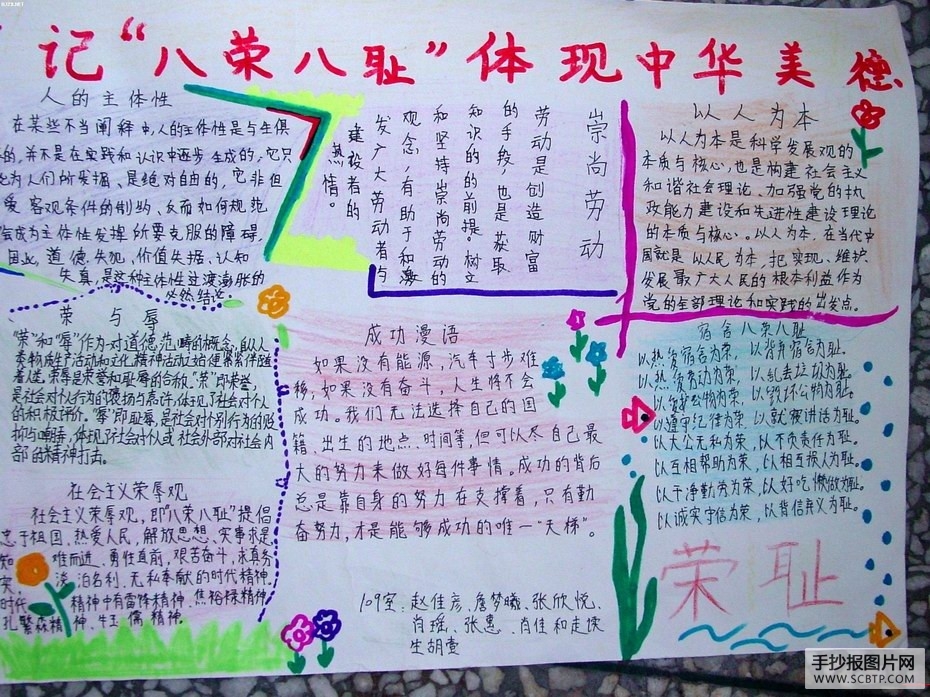 记“八荣八耻”体现中华美德
人的主体性
在某些不当阐释中,人的主体性是与生俱
的,并不是在实践和认识中逐步生成的,它只
为人们所发掘、是绝对自由的,它非但
受客观条件的制约、反而如何规范
会成为主体性发挥所要克服的障碍,
因此,道德失范、价值失据、认知
失真,是这种主体性过渡膨胀的
必然结论
崇尚劳动
劳动是创造财富
的手段,也是获取
知识的的前提。树立
和坚持崇尚劳动的
观念,有助于和
发广大劳动者与
建设者的
热情。
以人为本
以人为本是科学发展观的
本质与核心,也是构建社会主义
和谐社会理论、加强党的执
政能力建设和先进性建设理论
的本质与核心。以人为本,在当代中
国就是以人民为本,把实现、维护、
发展最广大人民的根本利益作为
党的全部理论和实践的出发点。
荣与辱
“荣”和“辱”作为一对道德范畴的概念,自从人
类物质生产活动和文化精神活动立始便紧紧伴随
着人类。荣辱是荣誉和耻辱的合称。“荣”即荣誉,
是社会对个人行为的褒扬与嘉许,体现了社会对个人
的积极评价。“辱”即耻辱,是社会对个别行为的贬
损与唾弃,体现了社会对个人或社会外部对社会内
部的精神打击。
成功漫语
如果没有能源,汽车寸步难
移,如果没有奋斗,人生将不会
成功。我们无法选择自己的国
籍、出生的地点、时间等,但可以尽自己最
大的努力来做好每件事情。成功的背后
总是靠自身的努力在支撑着,只有勤
奋努力,才是能够成功的唯一“天梯”。
宿舍八荣八耻
以热爱宿舍为荣,以背弃宿舍为耻。
以热爱劳动为荣,以乱丢垃圾为耻
以爱护公物为荣,以毁坏公物为耻
以遵守纪律为荣,以就寝讲话为耻。
以大公无私为荣,以不负责任为耻。
以互相帮助为荣,以相互损人为耻。
以干净勤劳为荣,以好吃懒做为耻。
以诚实守信为荣,以背信弃义为耻。
社会主义荣辱观
社会主义荣辱观,即“八荣八耻”提倡
忠于祖国、热爱人民,解放思想、实事求是
知难而进、勇往直前,艰苦奋斗,永真务
实,淡泊名利、无私奉献的时代精神,
时代精神中有雷锋精神、焦裕禄精神、
孔繁森精神、牛玉儒精神。
109室:赵佳彦、詹梦曦、张欣悦、
肖瑶、张惠、肖佳和走读
生胡萱
荣耻
手抄报图片网
WWW.SCBTP.COM